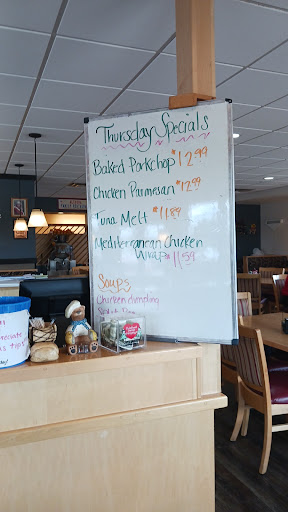 Thursday Specials
Baked Porkchop $12.99
Chicken Parmesan $12.99
Tuna Melt $11.89
Mediterranean Chicken
Wrap $11.59
Soups
Chicken dumpling